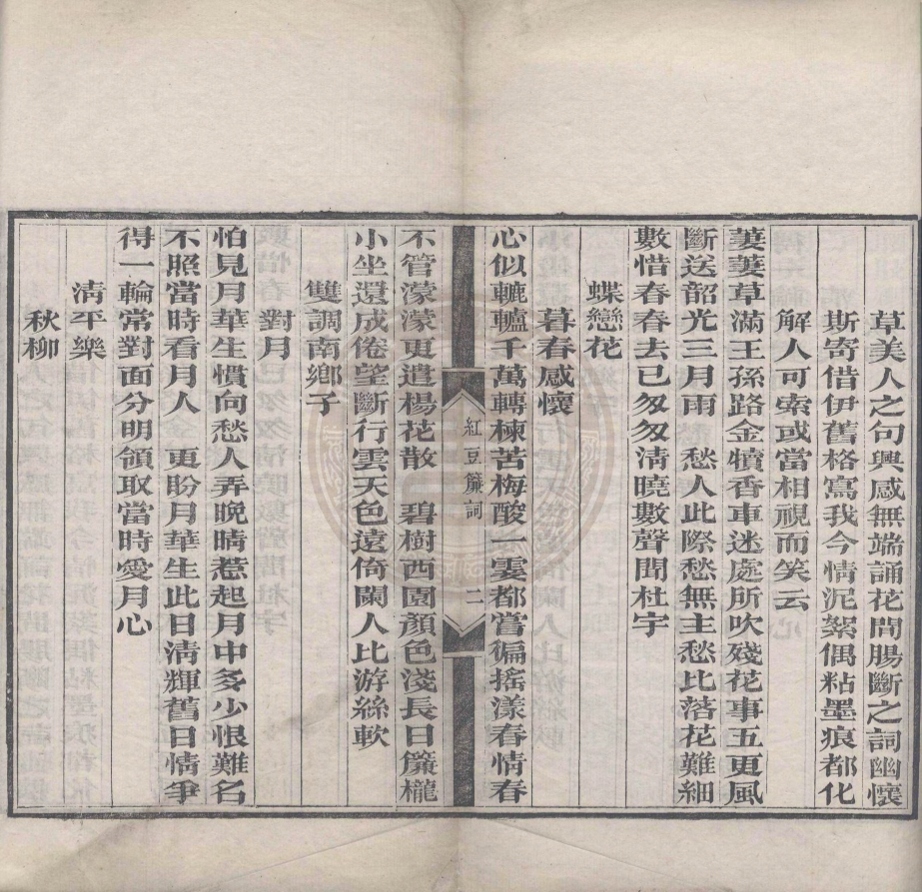 草美人之句興感無端誦花間腸斷之詞幽懷
斯寄借伊舊格寫我今情泥絮偶粘墨痕都化
解人可索或當相視而笑云
萋萋草滿王孫路金犢香車迷處所吹殘花事五更風
斷送韶光三月雨　愁人此際愁無主愁比落花難細
數惜春春去已匆匆淸曉數聲聞杜宇
蝶戀花
暮春感懷
心似轆轤千萬轉楝苦梅酸一霎都嘗徧搖漾春情春
紅豆簾詞
二
不管濛濛更遣楊花散　碧樹西園顏色淺長日簾櫳
小坐還成倦望斷行雲天色遠倚闌人比游絲軟
雙調南鄉子
對月
怕見月華生慣向愁人弄晚晴惹起月中多少恨難名
不照當時看月人　更盼月華生此日淸輝舊日情爭
得一輪常對面分明領取當時愛月心
淸平樂
秋柳